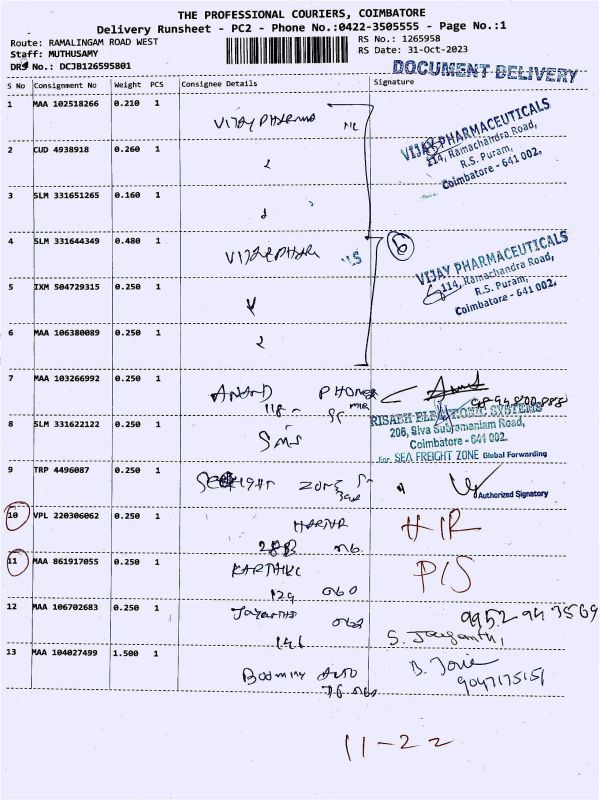 THE PROFESSIONAL COURIERS, COIMBATORE
Delivery Runsheet - PC2 - Phone No.:0422-3505555 - Page No.:1
Route: RAMALINGAM ROAD WEST
RS No.: 1265958
Staff: MUTHUSAMY
RS Date: 31-Oct-2023
DRS No.: DCJB126595801
DOCUMENT DELIVERY
S No Consignment No Weight PCS Consignee Details Signature
1 MAA 102518266 0.210 1 VIJAY PHARMA
VIJAY PHARMACEUTICALS
114, Ramachandra Road,
R.S. Puram,
Coimbatore - 641 002.
2 CUD 4938918 0.260 1
3 SLM 331651265 0.160 1
4 SLM 331644349 0.480 1 6
VIJAY PHARMACEUTICALS
114, Ramachandra Road,
R.S. Puram,
Coimbatore - 641 002.
5 IXM 504729315 0.250 1
6 MAA 106380089 0.250 1
7 MAA 103266992 0.250 1 ANAND
8 SLM 331622122 0.250 1 SMS
RISABH ELECTRONIC SYSTEMS
206, Siva Subramaniam Road,
Coimbatore - 641 002.
For SEA FREIGHT ZONE Global Forwarding
9 TRP 4496087 0.250 1 ZONE
Authorized Signatory
10 VPL 220306062 0.250 1
11 MAA 861917055 0.250 1 KARTHIKC
P/S
12 MAA 106702683 0.250 1
9952943569
S. Jayanthi,
13 MAA 104027499 1.500 1 AUTO
9047175151
11-22